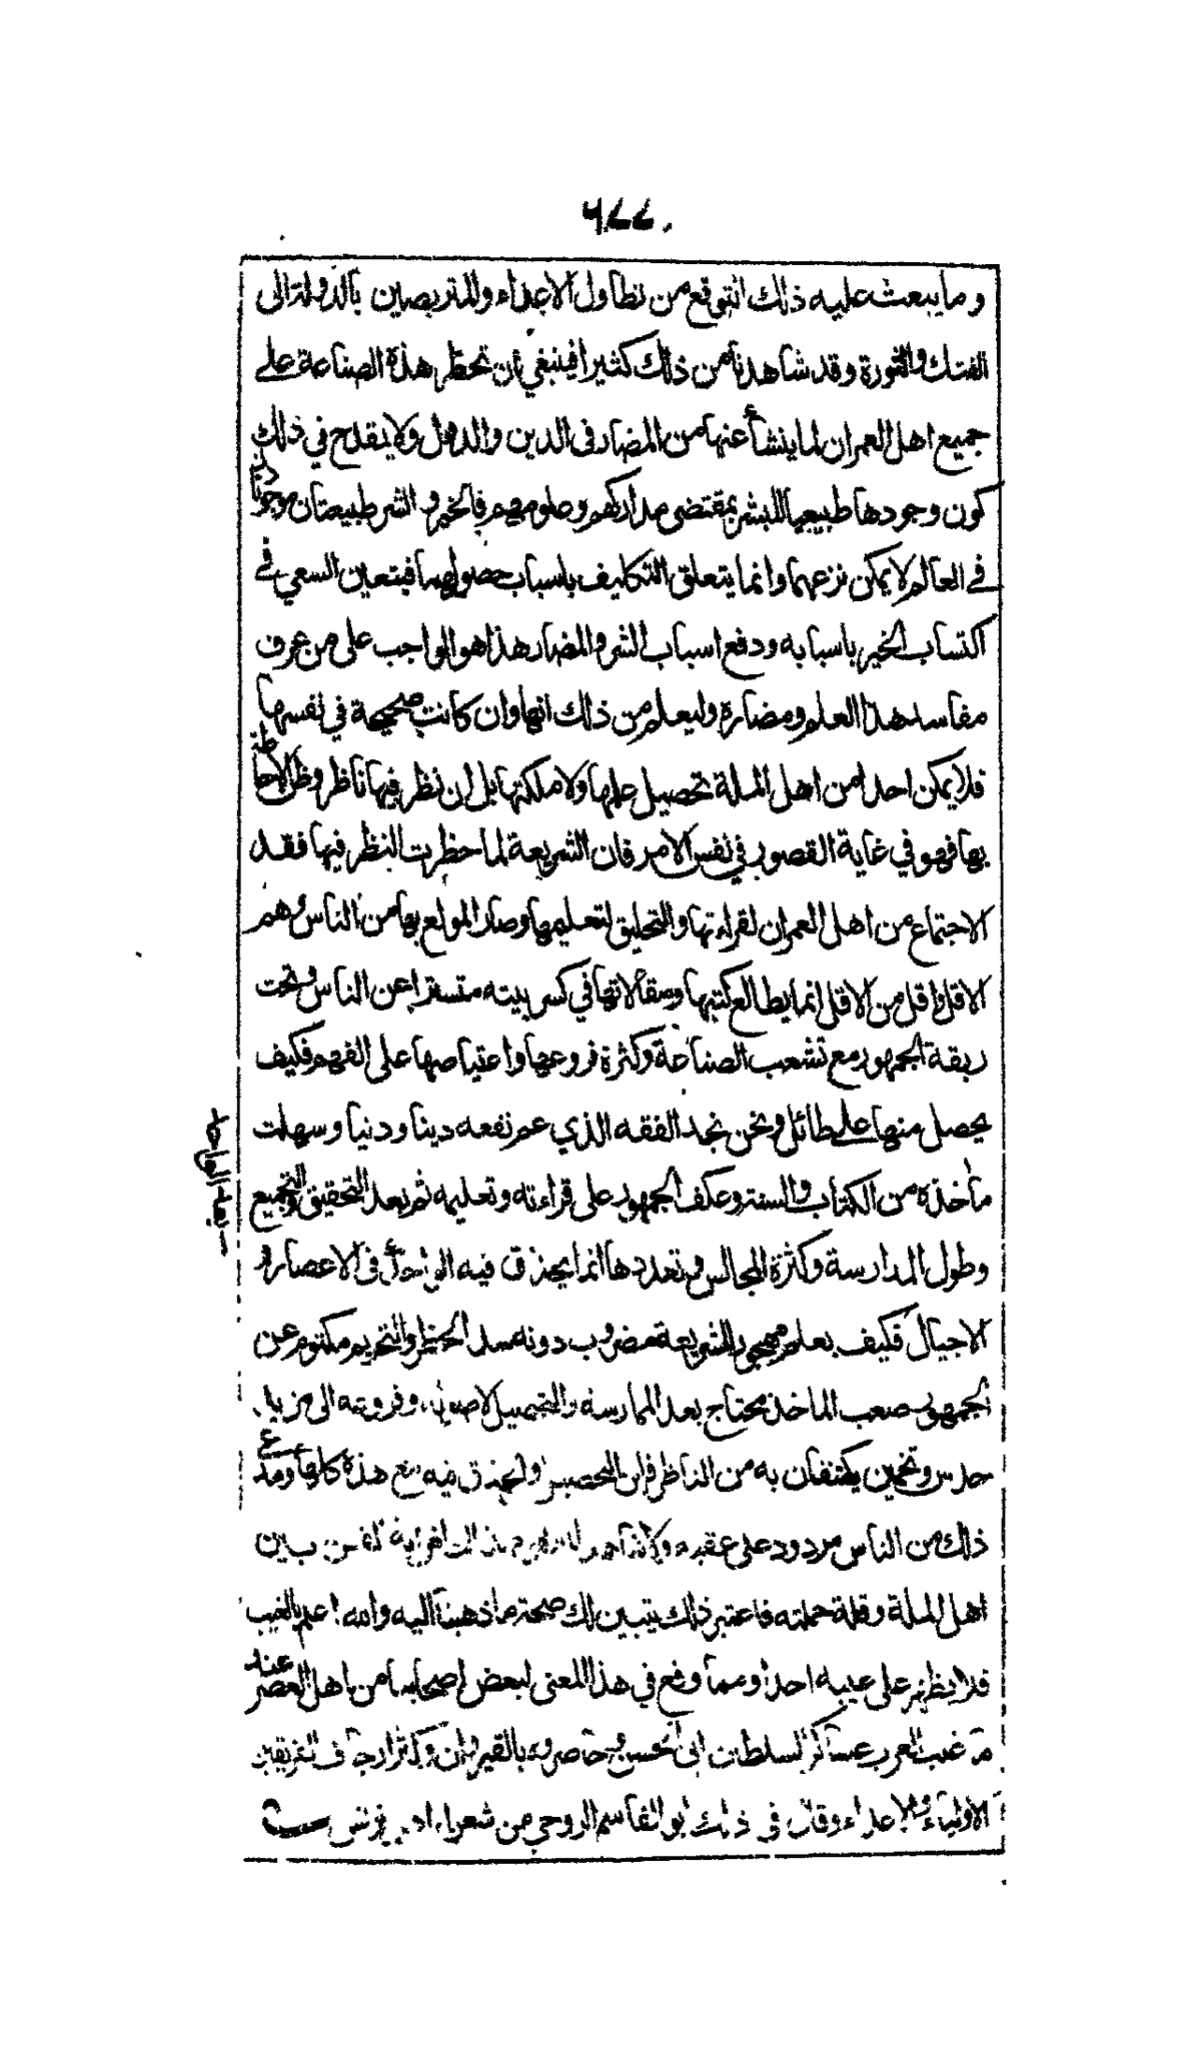 ٦٧٧
وما يبعث عليه ذلك التوقع من تطاول الاعداء والمتربصين بالدولة الى
الفتك والثورة وقد شاهدنا من ذلك كثيرا فينبغي ان تحظر هذه الصناعة على
جميع اهل العمران لما ينشأ عنها من المضار في الدين والدول ولا يقدح في ذلك
كون وجودها طبيعيا للبشر بمقتضى مداركهم وعلومهم فالخير والشر طبيعتان موجودتان
في العالم لا يمكن نزعهما وانما يتعلق التكليف باسباب حصولهما فيتعين السعي في
اكتساب الخير باسبابه ودفع اسباب الشر والمضار هذا هو الواجب على من عرف
مفاسد هذا العلم ومضاره وليعلم من ذلك انها وان كانت صحيحة في نفسها
فلا يمكن احدا من اهل الملة تحصيل علمها ولا ملكتها بل ان نظر فيها ناظر وظن الاحاطة
بها فهو في غاية القصور في نفس الامر فان الشريعة لما حظرت النظر فيها فقد
الاجتماع من اهل العمران لقراءتها والتحليق لتعليمها وصار المولع بها من الناس وهم
الاقل واقل من الاقل انما يطالع كتبها ومقالاتها في كسر بيته متسترا عن الناس وتحت
ربقة الجمهور مع تشعب الصناعة وكثرة فروعها واعتياصها على الفهم فكيف
يحصل منها على طائل ونحن نجد الفقه الذي عم نفعه دينا ودنيا وسهلت
مآخذه من الكتاب والسنة وعكف الجمهور على قراءته وتعليمه ثم بعد التحقيق والتجميع
وطول المدارسة وكثرة المجالس وتعددها انما يحذق فيه الواحد في الاعصار و
الاجيال فكيف بعلم مهجور للشريعة مضروب دونه سد الحظر والتحريم مكتوم عن
الجمهور صعب المآخذ محتاج بعد الممارسة والتحصيل لاصوله وفروعه الى مزيد
حدس وتخمين يكتنفان به من الناظر فاين التحصيل والحذق فيه مع هذه كلها ومدعي
ذلك من الناس مردود على عقبه ولا شاهد له يقوم بذلك لغرابة الفن بين
اهل الملة وقلة حملته فاعتبر ذلك يتبين لك صحة ما ذهبنا اليه والله اعلم بالغيب
فلا يظهر على غيبه احدا ومما وقع في هذا المعنى لبعض اصحابنا من اهل العصر عند
ما غلب العرب عساكر السلطان ابى الحسن وحاصروه بالقيروان وكثر ارجاف الفريقين
الاولياء والاعداء وقال في ذلك ابو القاسم الروحي من شعراء اهل تونس